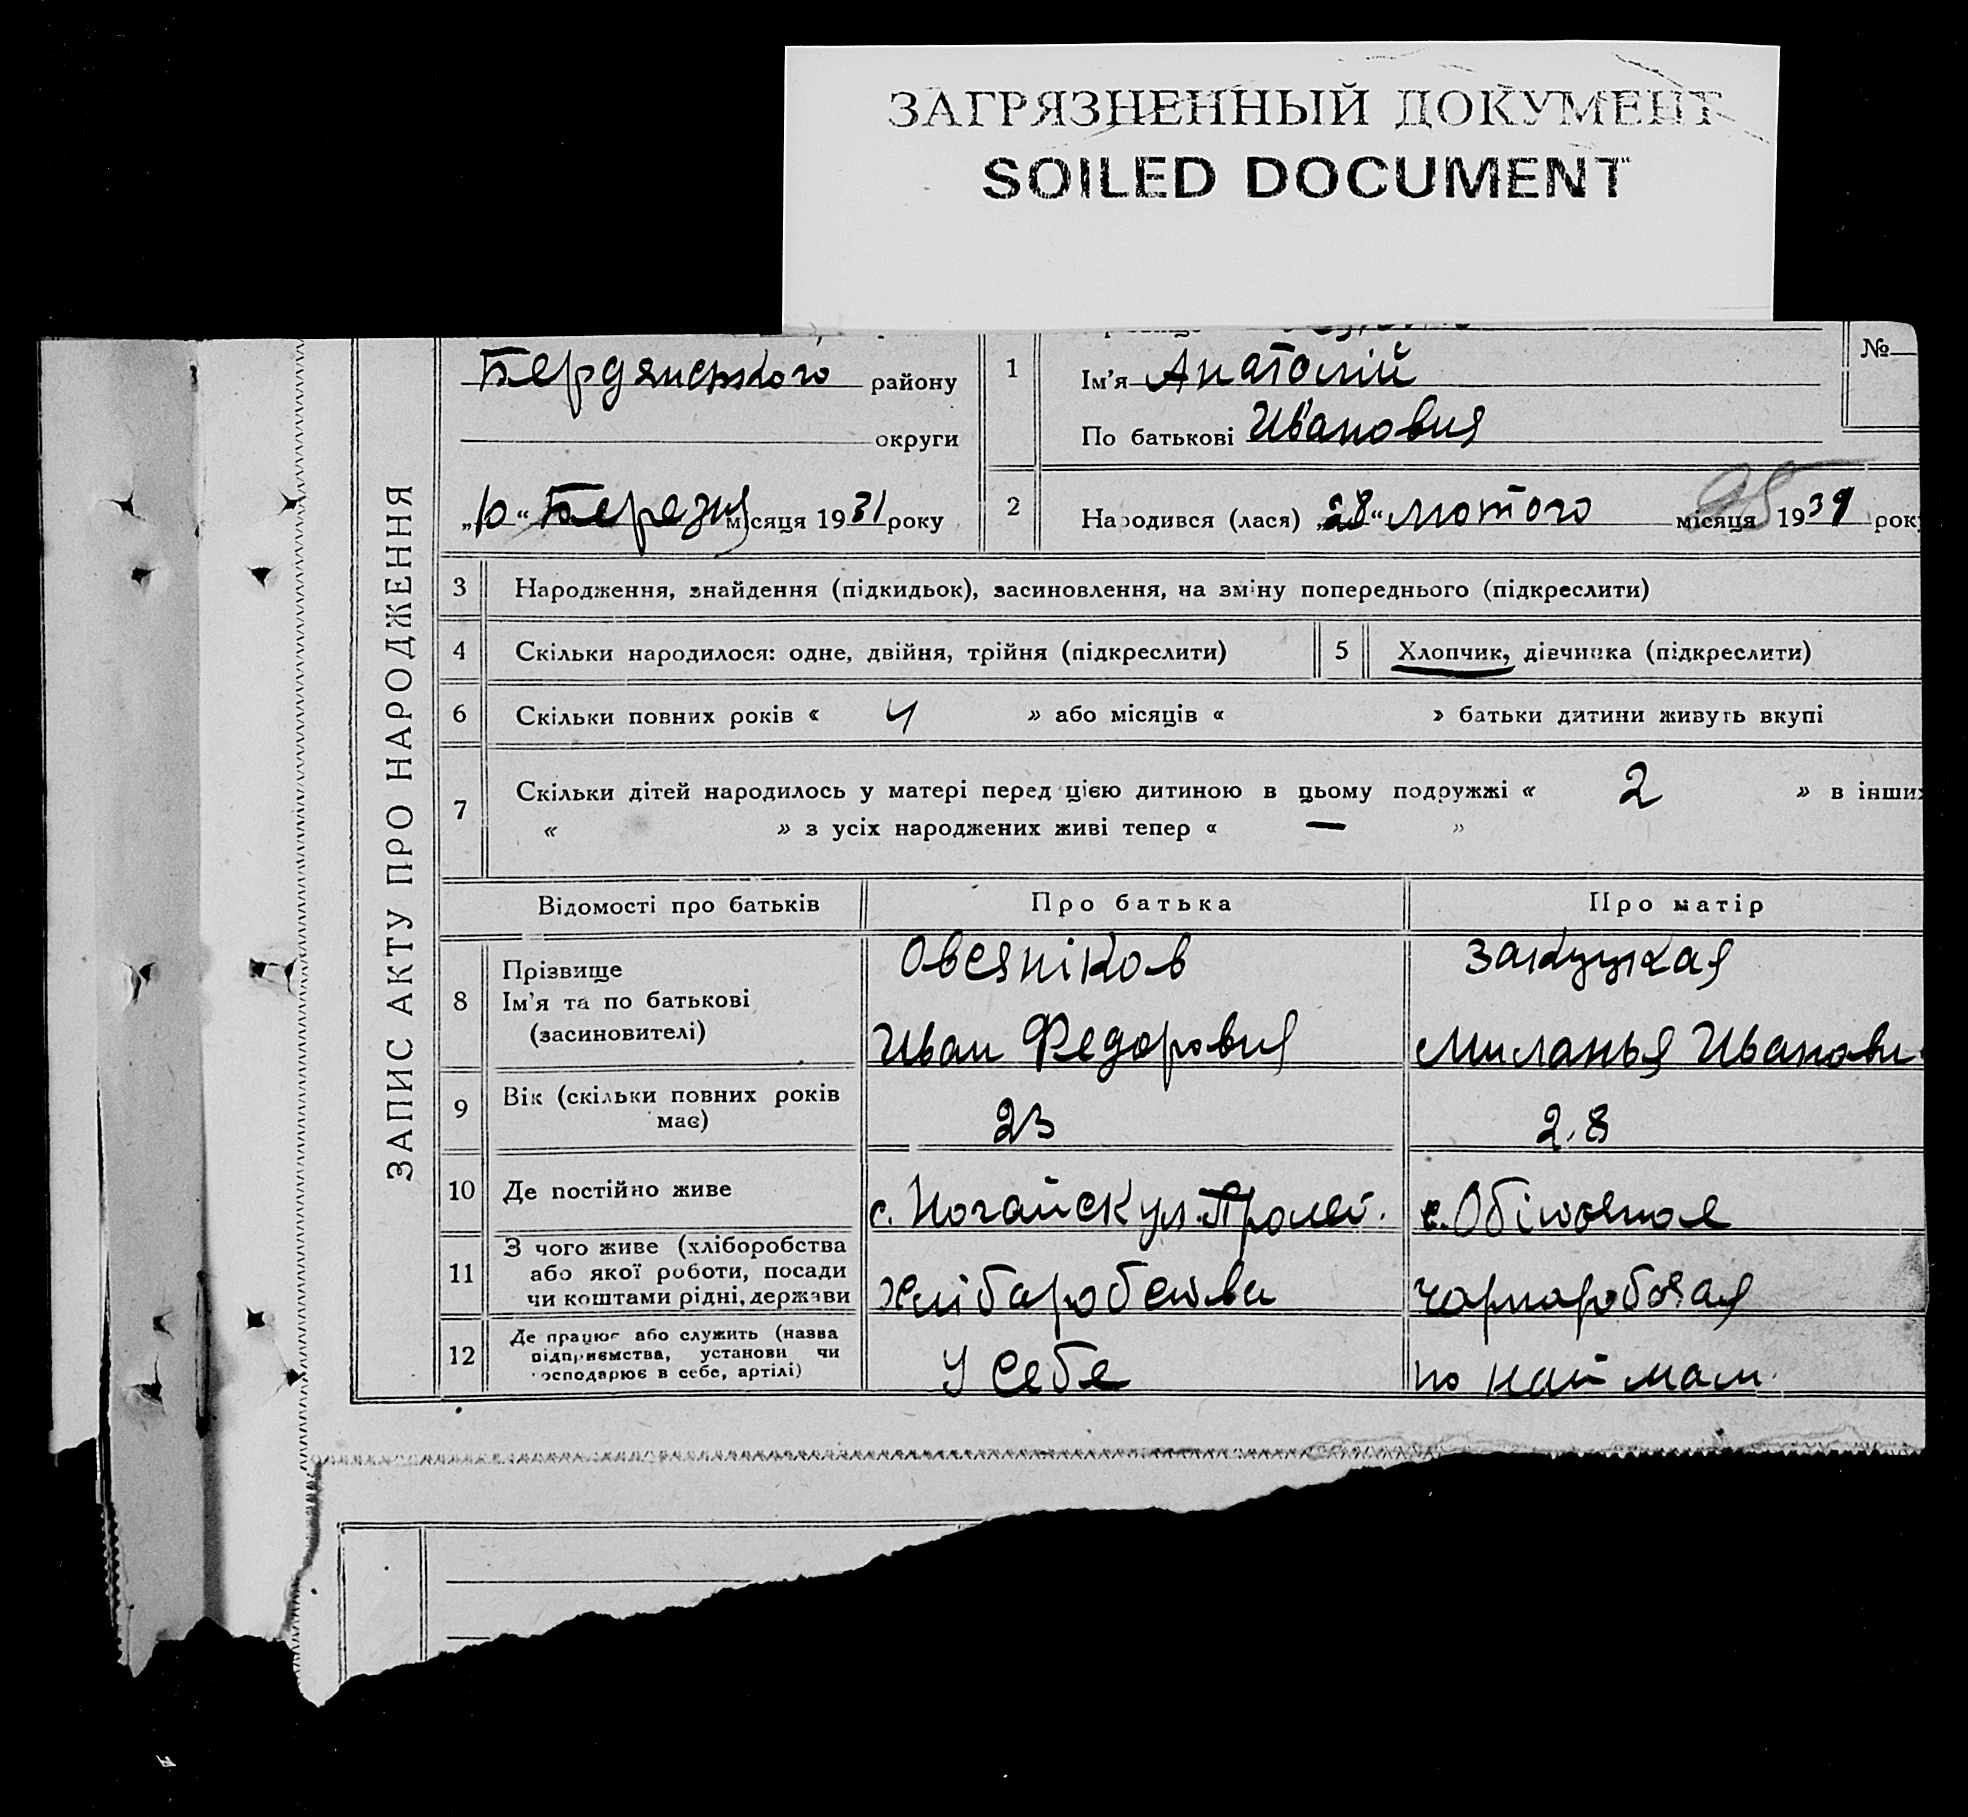 ЗАГРЯЗНЕННЫЙ ДОКУМЕНТ
SOILED DOCUMENT
Бердянського району
округи
„10“ Березня місяця 1931 року
ЗАПИС АКТУ ПРО НАРОДЖЕННЯ
№
1 Ім'я Анатолій
По батькові Ивановия
2 Народився (лася) „28“ лютого місяця 1931 рок
3 Народження, знайдення (підкидьок), засиновлення, на зміну попереднього (підкреслити)
4 Скільки народилося: одне, двійня, трійня (підкреслити)
5 Хлопчик, дівчинка (підкреслити)
6 Скільки повних років « 4 » або місяців « » батьки дитини живуть вкупі
7 Скільки дітей народилось у матері перед цією дитиною в цьому подружжі « 2 » в інших
« » з усіх народжених живі тепер « — »
Відомості про батьків Про батька Про матір
8 Прізвище
Ім'я та по батькові
(засиновителі)
Овсяніков
Иван Федоровия
Закуцкая
Миланья Иванови
9 Вік (скільки повних років
має)
23
28
10 Де постійно живе
с. Ногайск ул. Пролет.
с. Обіточная
11 З чого живе (хліборобства
або якої роботи, посади
чи коштами рідні, держави
хліборобства
чорноробочая
12 Де працює або служить (назва
підприємства, установи чи
господарює в себе, артілі)
У себе
по наймам.